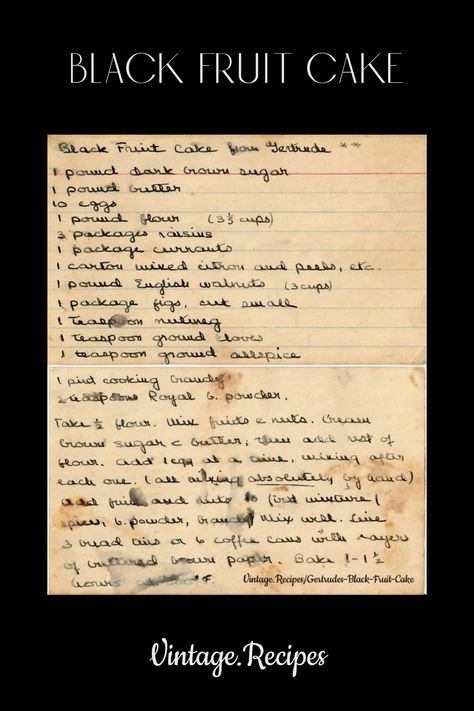 BLACK FRUIT CAKE
Black Fruit Cake from Gertrude **
1 pound dark brown sugar
1 pound butter
10 eggs
1 pound flour (3 1/3 cups)
3 packages raisins
1 package currants
1 carton mixed citron and peels, etc.
1 pound English walnuts (3 cups)
1 package figs, cut small
1 Teaspoon nutmeg
1 teaspoon ground cloves
1 teaspoon ground allspice
1 pint cooking brandy
2 teaspoons Royal b. powder.
Take ½ flour. Mix fruits & nuts. Cream
brown sugar & butter, then add rest of
flour. add 1 egg at a time, mixing after
each one. (all mixing absolutely by hand)
add fruit and nuts to first mixture,
spices, b. powder, brandy. Mix well. Line
3 bread tins or 6 coffee cans with layers
of buttered brown paper. Bake 1-1½
hours at
Vintage.Recipes/Gertrudes-Black-Fruit-Cake
Vintage.Recipes